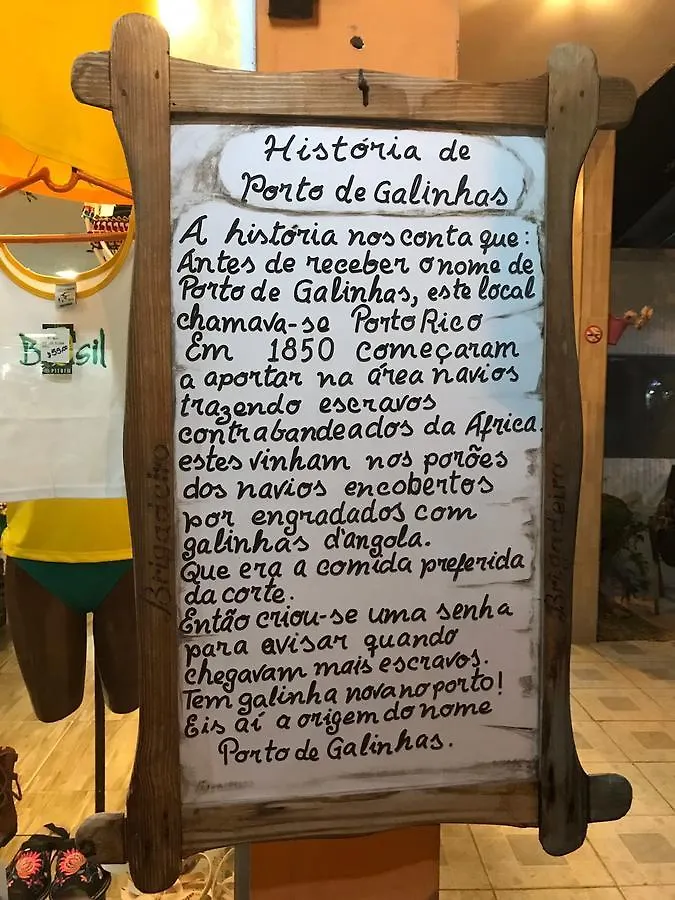 História de
Porto de Galinhas
A história nos conta que:
Antes de receber o nome de
Porto de Galinhas, este local
chamava-se Porto Rico
Em 1850 começaram
a aportar na área navios
trazendo escravos
contrabandeados da África.
estes vinham nos porões
dos navios encobertos
por engradados com
galinhas d'angola.
Que era a comida preferida
da corte.
Então criou-se uma senha
para avisar quando
chegavam mais escravos.
Tem galinha nova no porto!
Eis aí a origem do nome
Porto de Galinhas.
Brigadeiro
Brigadeiro